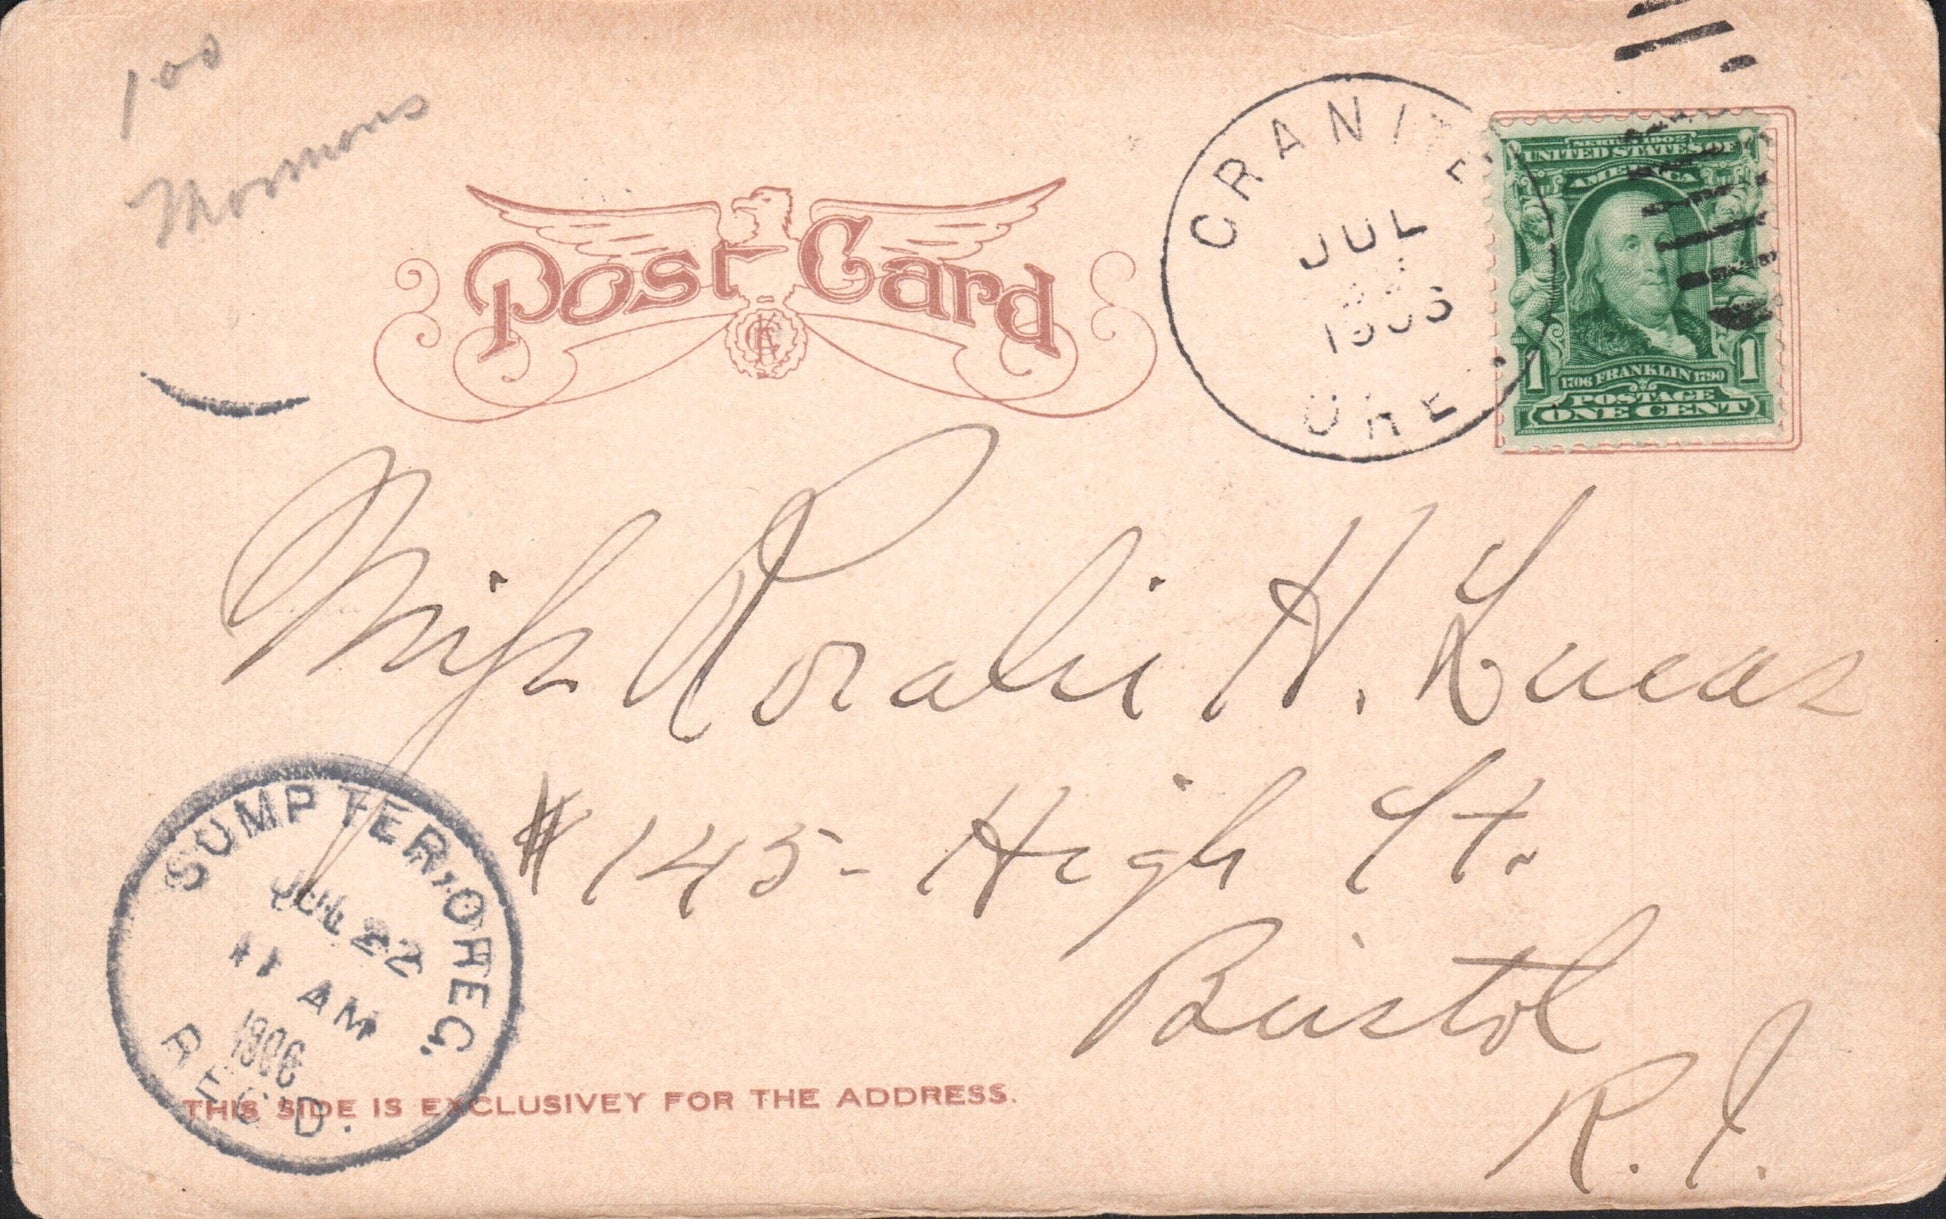 100
Mormons
Post Card
GRANITE
JUL
1906
ORE.
SERIES 1902
UNITED STATES OF
AMERICA
1 1706 FRANKLIN 1790 1
POSTAGE
ONE CENT
Miss Roralie H. Lucas
#145- High St.
Bristol
R.I.
SUMPTER, OREG.
JUL 22
11 AM
1906
REC'D.
THIS SIDE IS EXCLUSIVEY FOR THE ADDRESS.